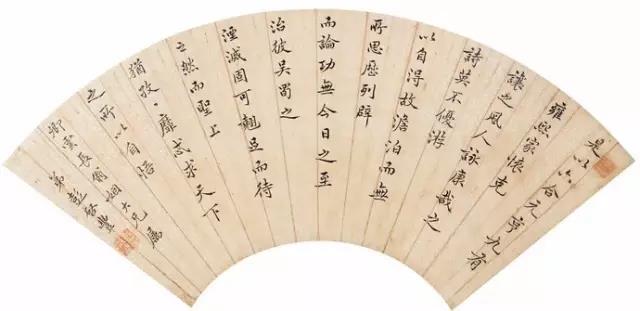 是以六合元亨九有
雍熙家懷克
讓之風人詠康哉之
詩莫不優游
以自得故澹泊而無
所思歷列辟
而論功無今日之至
治彼吳蜀之
湮滅固可翹足而待
之然而聖上
猶孜〃靡忒求天下
之所以自悟
卿雲長翁姻大兄屬
弟彭啟豐